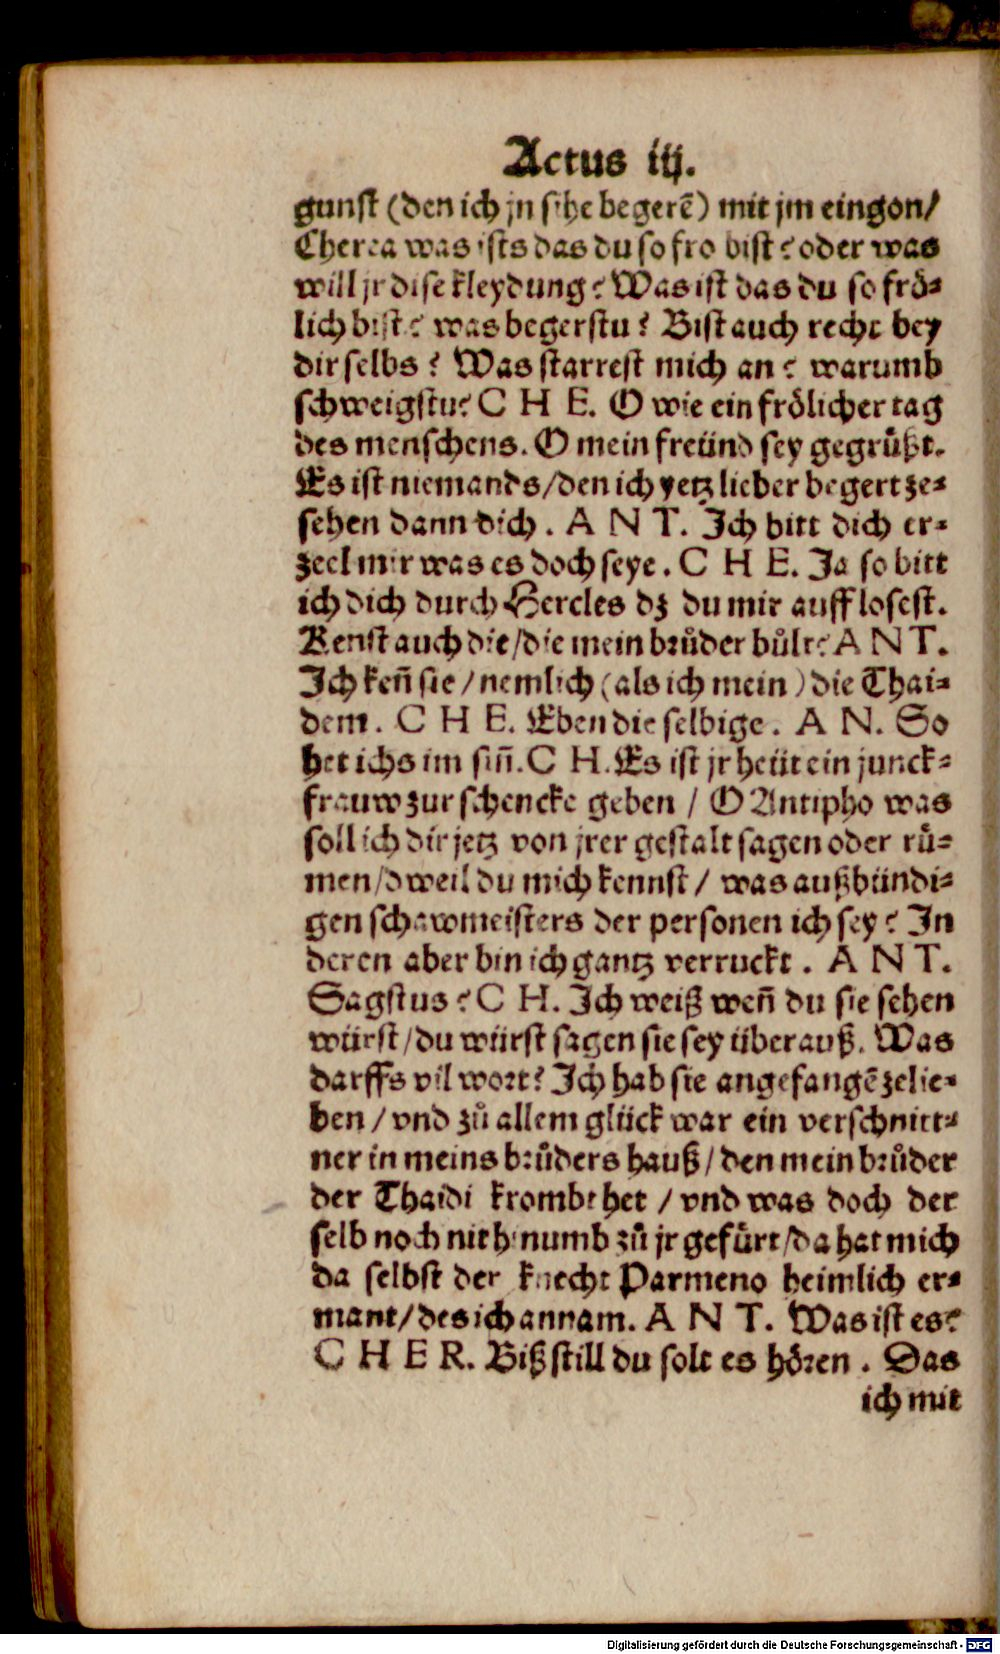 Actus iij.
gunst (den ich jn sihe begerẽ) mit jm eingon/
Cherea was ists das du so fro bist? oder was
will jr dise kleydung? Was ist das du so frö-
lich bist? was begerstu? Bist auch recht bey
dir selbs? Was starrest mich an? warumb
schweigstu? C H E. O wie ein frölicher tag
des menschens. O mein freünd sey gegrůßt.
Es ist niemands/den ich yetz lieber begert ze-
sehen dann dich. A N T. Ich bitt dich er-
zeel mir was es doch seye. C H E. Ja so bitt
ich dich durch Hercles dz du mir auff losest.
Kenst auch die/die mein brůder bůlt? A N T.
Ich keñ sie/nemlich (als ich mein) die Thai-
dem. C H E. Eben die selbige. A N. So
het ichs im siñ. C H. Es ist jr heüt ein junck-
frauw zur schencke geben / O Antipho was
soll ich dir jetz von jrer gestalt sagen oder rů-
men/dweil du mich kennst/ was außbündi-
gen schawmeisters der personen ich sey? In
deren aber bin ich gantz verruckt. A N T.
Sagstus? C H. Ich weiß weñ du sie sehen
würst/du würst sagen sie sey überauß. Was
darffs vil wort? Ich hab sie angefangẽ zelie-
ben/vnd zů allem glück war ein verschnitt-
ner in meins brůders hauß/den mein brůder
der Thaidi krombt het / vnd was doch der
selb noch nit hinumb zů jr gefürt/da hat mich
da selbst der knecht Parmeno heimlich er-
mant/des ich annam. A N T. Was ist es?
C H E R. Biß still du solt es hören. Das
ich mit
Digitalisierung gefördert durch die Deutsche Forschungsgemeinschaft - DFG